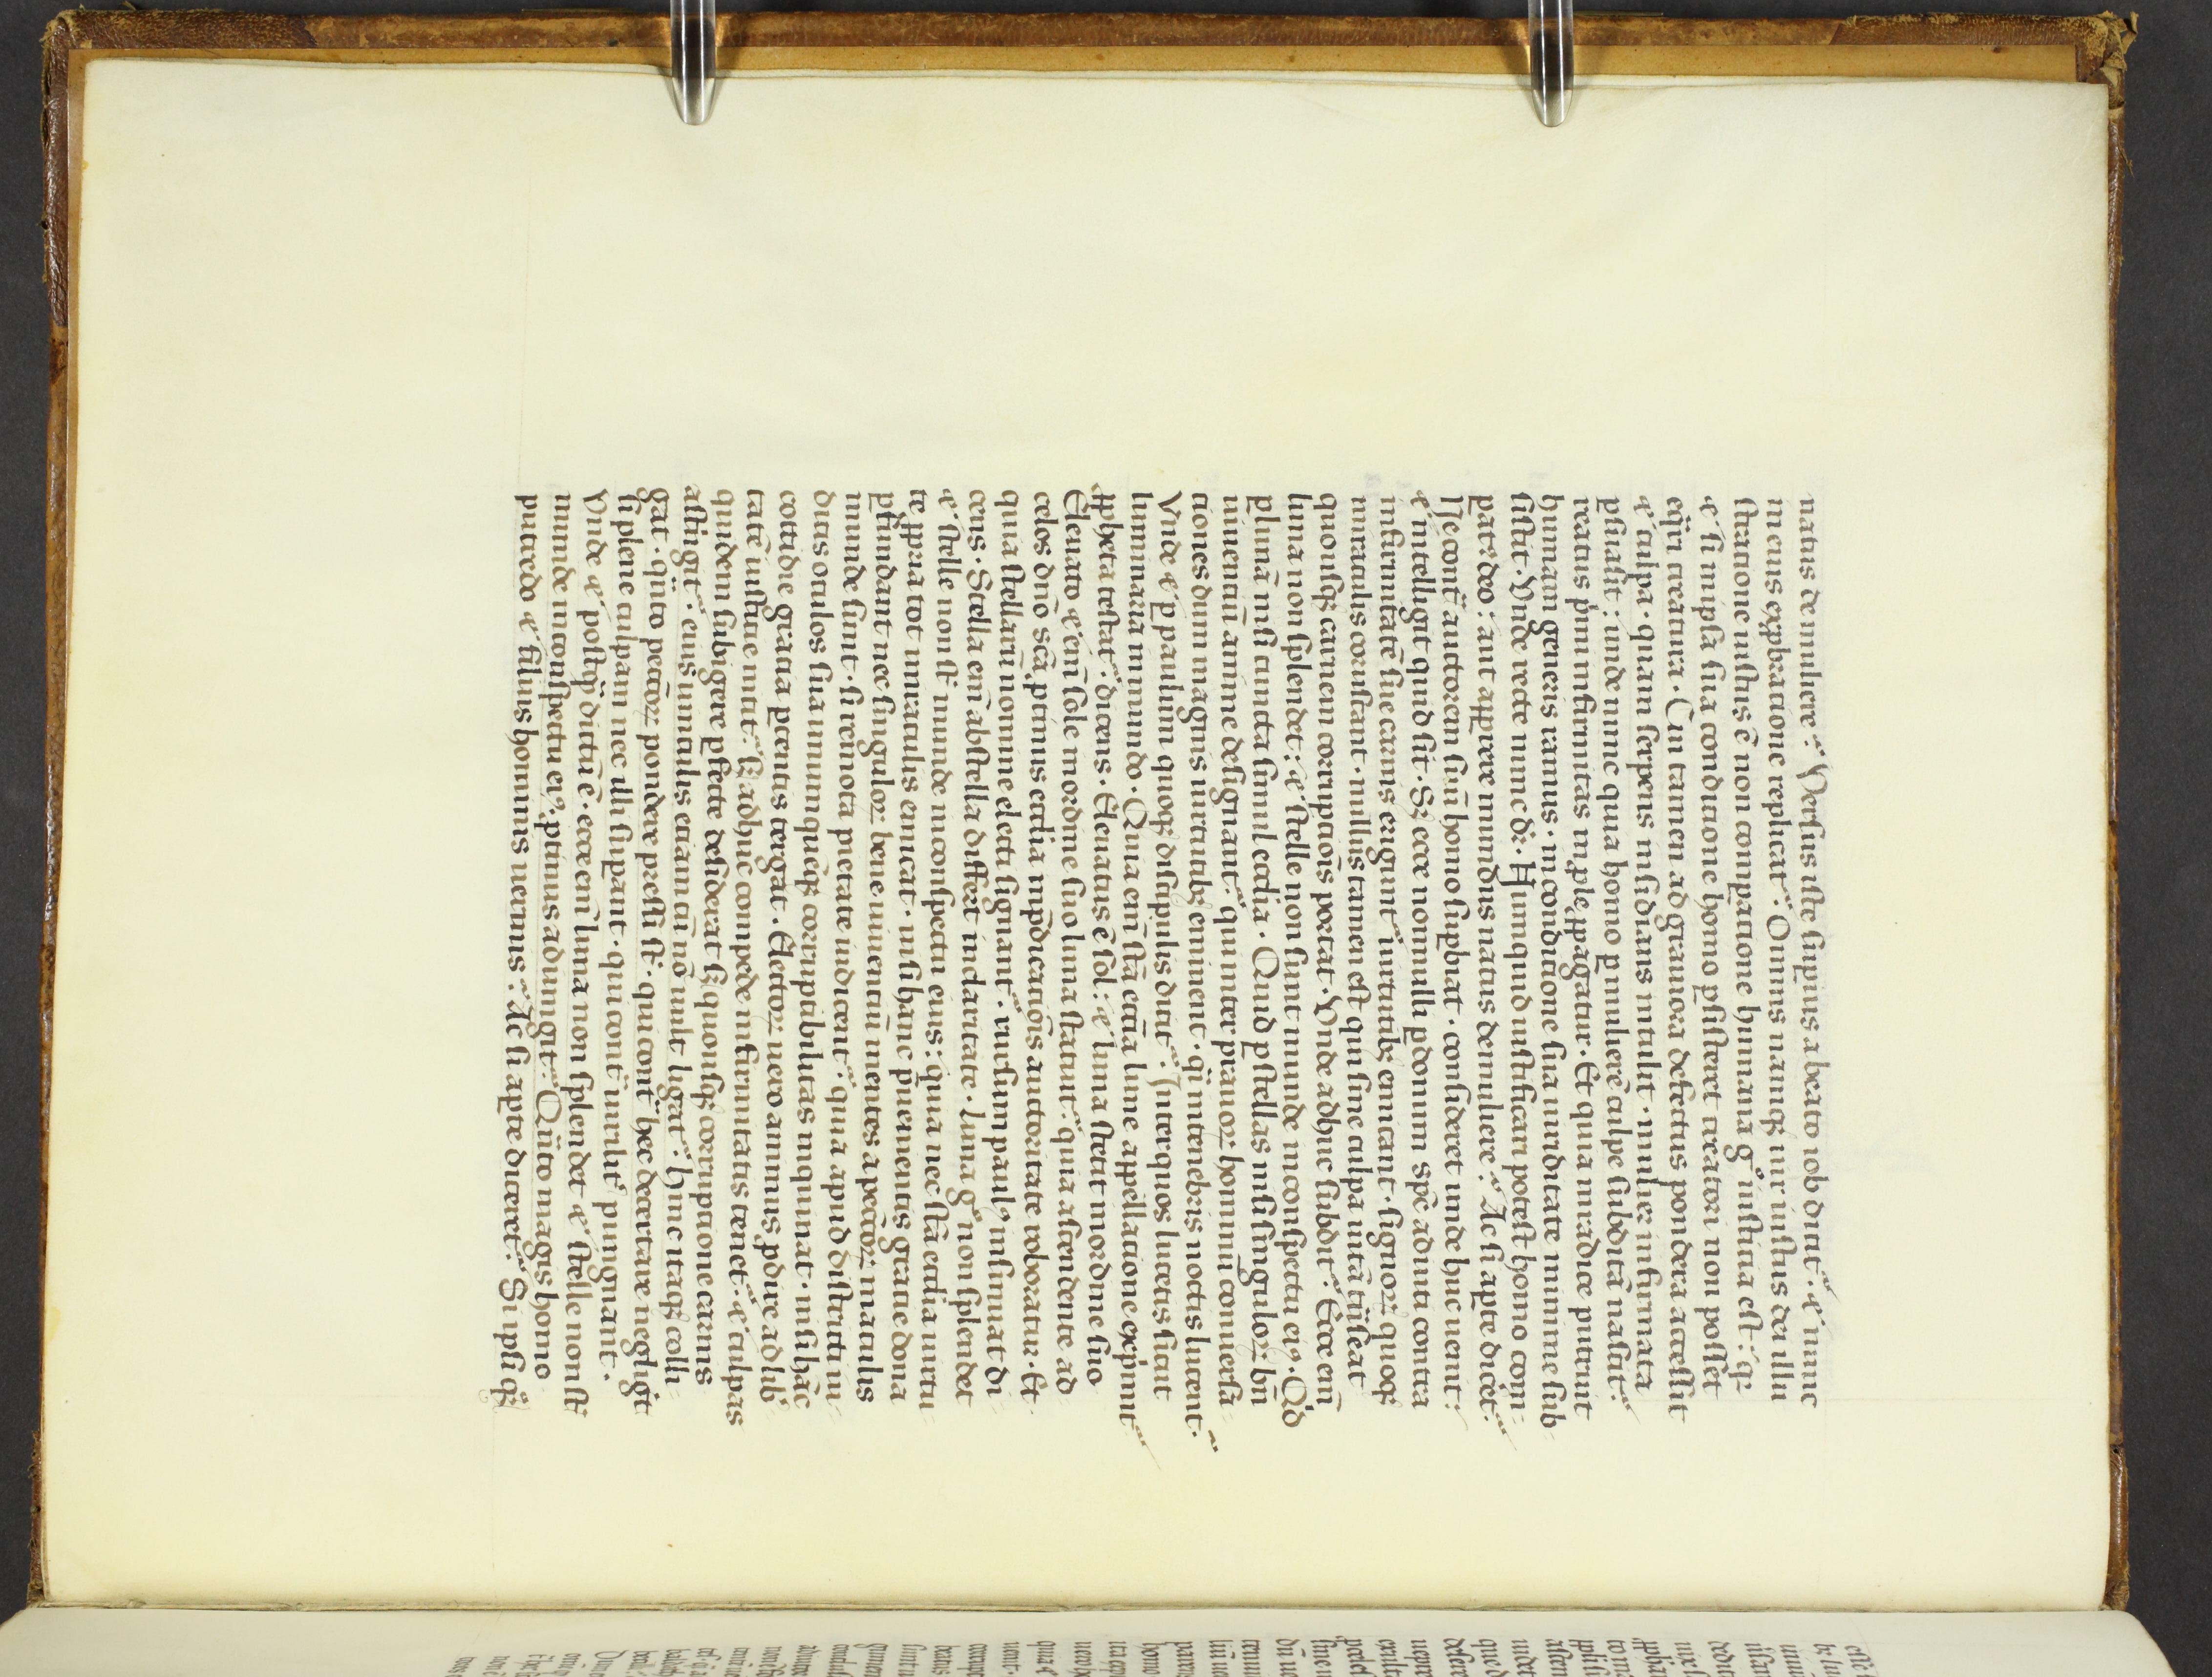 natus de muliere: Uersus iste supius a beato iob dicit᷑. ⁊ nunc
in eius exprobatione replicat᷑. Omnis namq; uir iustus dei illu
stratione iustus ē non compatione humana g° iusticia est: q;
⁊ si in ipsa sua conditione homo psisteret creatori non posset
eqri creatura. Cui tamen ad grauiora defectus pondera accessit
⁊ culpa. quam serpens insidians intulit. mulier infirmata
psuasit: unde nunc quia homo p mulierē culpe subditā nascit᷑.
reatus pim infirmitas in ple ꝓpagatur. Et quia in radice putruit
humani generis ramus. in conditione sua uiriditate minime sub
sistit. Unde recte nunc dr. Nunquid iustificari potest homo com=
pat᷑ deo: aut apparere mundus natus de muliere. Ac si apte dicer᷑.
Ne cont̃ auctorem suū homo supbiat. consideret unde huc uenit:
⁊ intelligit quid sit. S; ecce nonnulli p donum spc̄ adiuti contra
infirmitatē sue carnis erigunt᷑. uirtutib; emicant. signoꝝ quoq;
miraculis coruscant. nullus tamen est qui sine culpa uitā trāseat
quousq; carnem corruptiōis portat. Unde adhuc subdit᷑. Ecce em̄
luna non splendet: ⁊ stelle non sunt munde in conspectu eiꝰ. Qd
p lunā nisi cuncta simul ecclia. Quid p stellas nisi singuloꝝ bn̄
uiuentiū anime designant᷑. qui inter prauoꝝ hominū conuersa=
tiones dum magnis uirtutib; eminent. q̄ in tenebris noctis lucent.
Unde ⁊ p paulum quoq; discipulis dicit᷑. Inter quos lucetis sicut
luminaria in mundo. Quia em̄ sc̄a ecc̄ia lune appellatione exprimit᷑
ꝓpheta testat᷑. dicens. Eleuatus ē sol: ⁊ luna stetit in ordine suo
Eleuato em̄ sole in ordine suo luna statuit᷑. quia ascendente ad
celos dn̄o sc̄a ptinus ecclia in p̄dicatiōis auctoritate roboratur. Et
quia stellarū nomine electi signant᷑. rursum paulꝰ insinuat di
cens. Stella em̄ ab stella differt in claritate. Luna g° non splendet
⁊ stelle non st̄ munde in conspectu eius: quia nec sc̄a ecclia uirtu=
te ꝓpria tot miraculis emicat. nisi hanc p̄uenientis gratie dona
pfundant nec singuloꝝ bene uiuentiū mentes a peccoꝝ maculis
munde sunt. si remota pietate iudicent᷑. quia apud districti iu=
dicis oculos sua unumquēq; corruptibilitas inquinat. nisi hāc
cottidie gratia parcentis tergat. Electoꝝ uero animus pdire ad lib̄
tatē iustitie nitit᷑. S; adhuc compede infirmitatis tenet᷑. ⁊ culpas
quidem subigere pfecte desiderat s; quousq; corruptione carnis
astringit᷑. eius uinculis etiam cū nō uult ligat᷑. hinc itaq; colli=
gat. q̄nto peccoꝝ pondere pressi st̄. qui cont̃ hec decertare negligit
si plene culpam nec illi supant. qui cont̃ uirilit᷑ pungnant.
Unde ⁊ postq̄ dictū ē. ecce em̄ luna non splendet ⁊ stelle non st̄
munde in conspectu eiꝰ. ptinus adiungit᷑. Qn̄to magis homo
putredo ⁊ filius hominis uermis: Ac si apte diceret. Si ipsi q̄